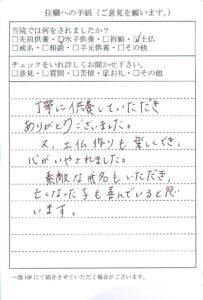 住職への手紙（ご意見を願います。）
当院では何をされましたか？
□先祖供養・☑水子供養・□祈願・☑土仏
□戒名・□相談・□手元供養・□その他
チェックをいれ詳しくお聞かせ下さい。
□意見・□質問・□苦情・☑お礼・□その他
丁寧に供養していただき
ありがとうございました。
又、土仏作りも楽しくでき、
心がいやされました。
素敵な戒名もいただき、
亡くなった子も喜んでいると思
います。
一部HPにて紹介させていただく場合がございます。